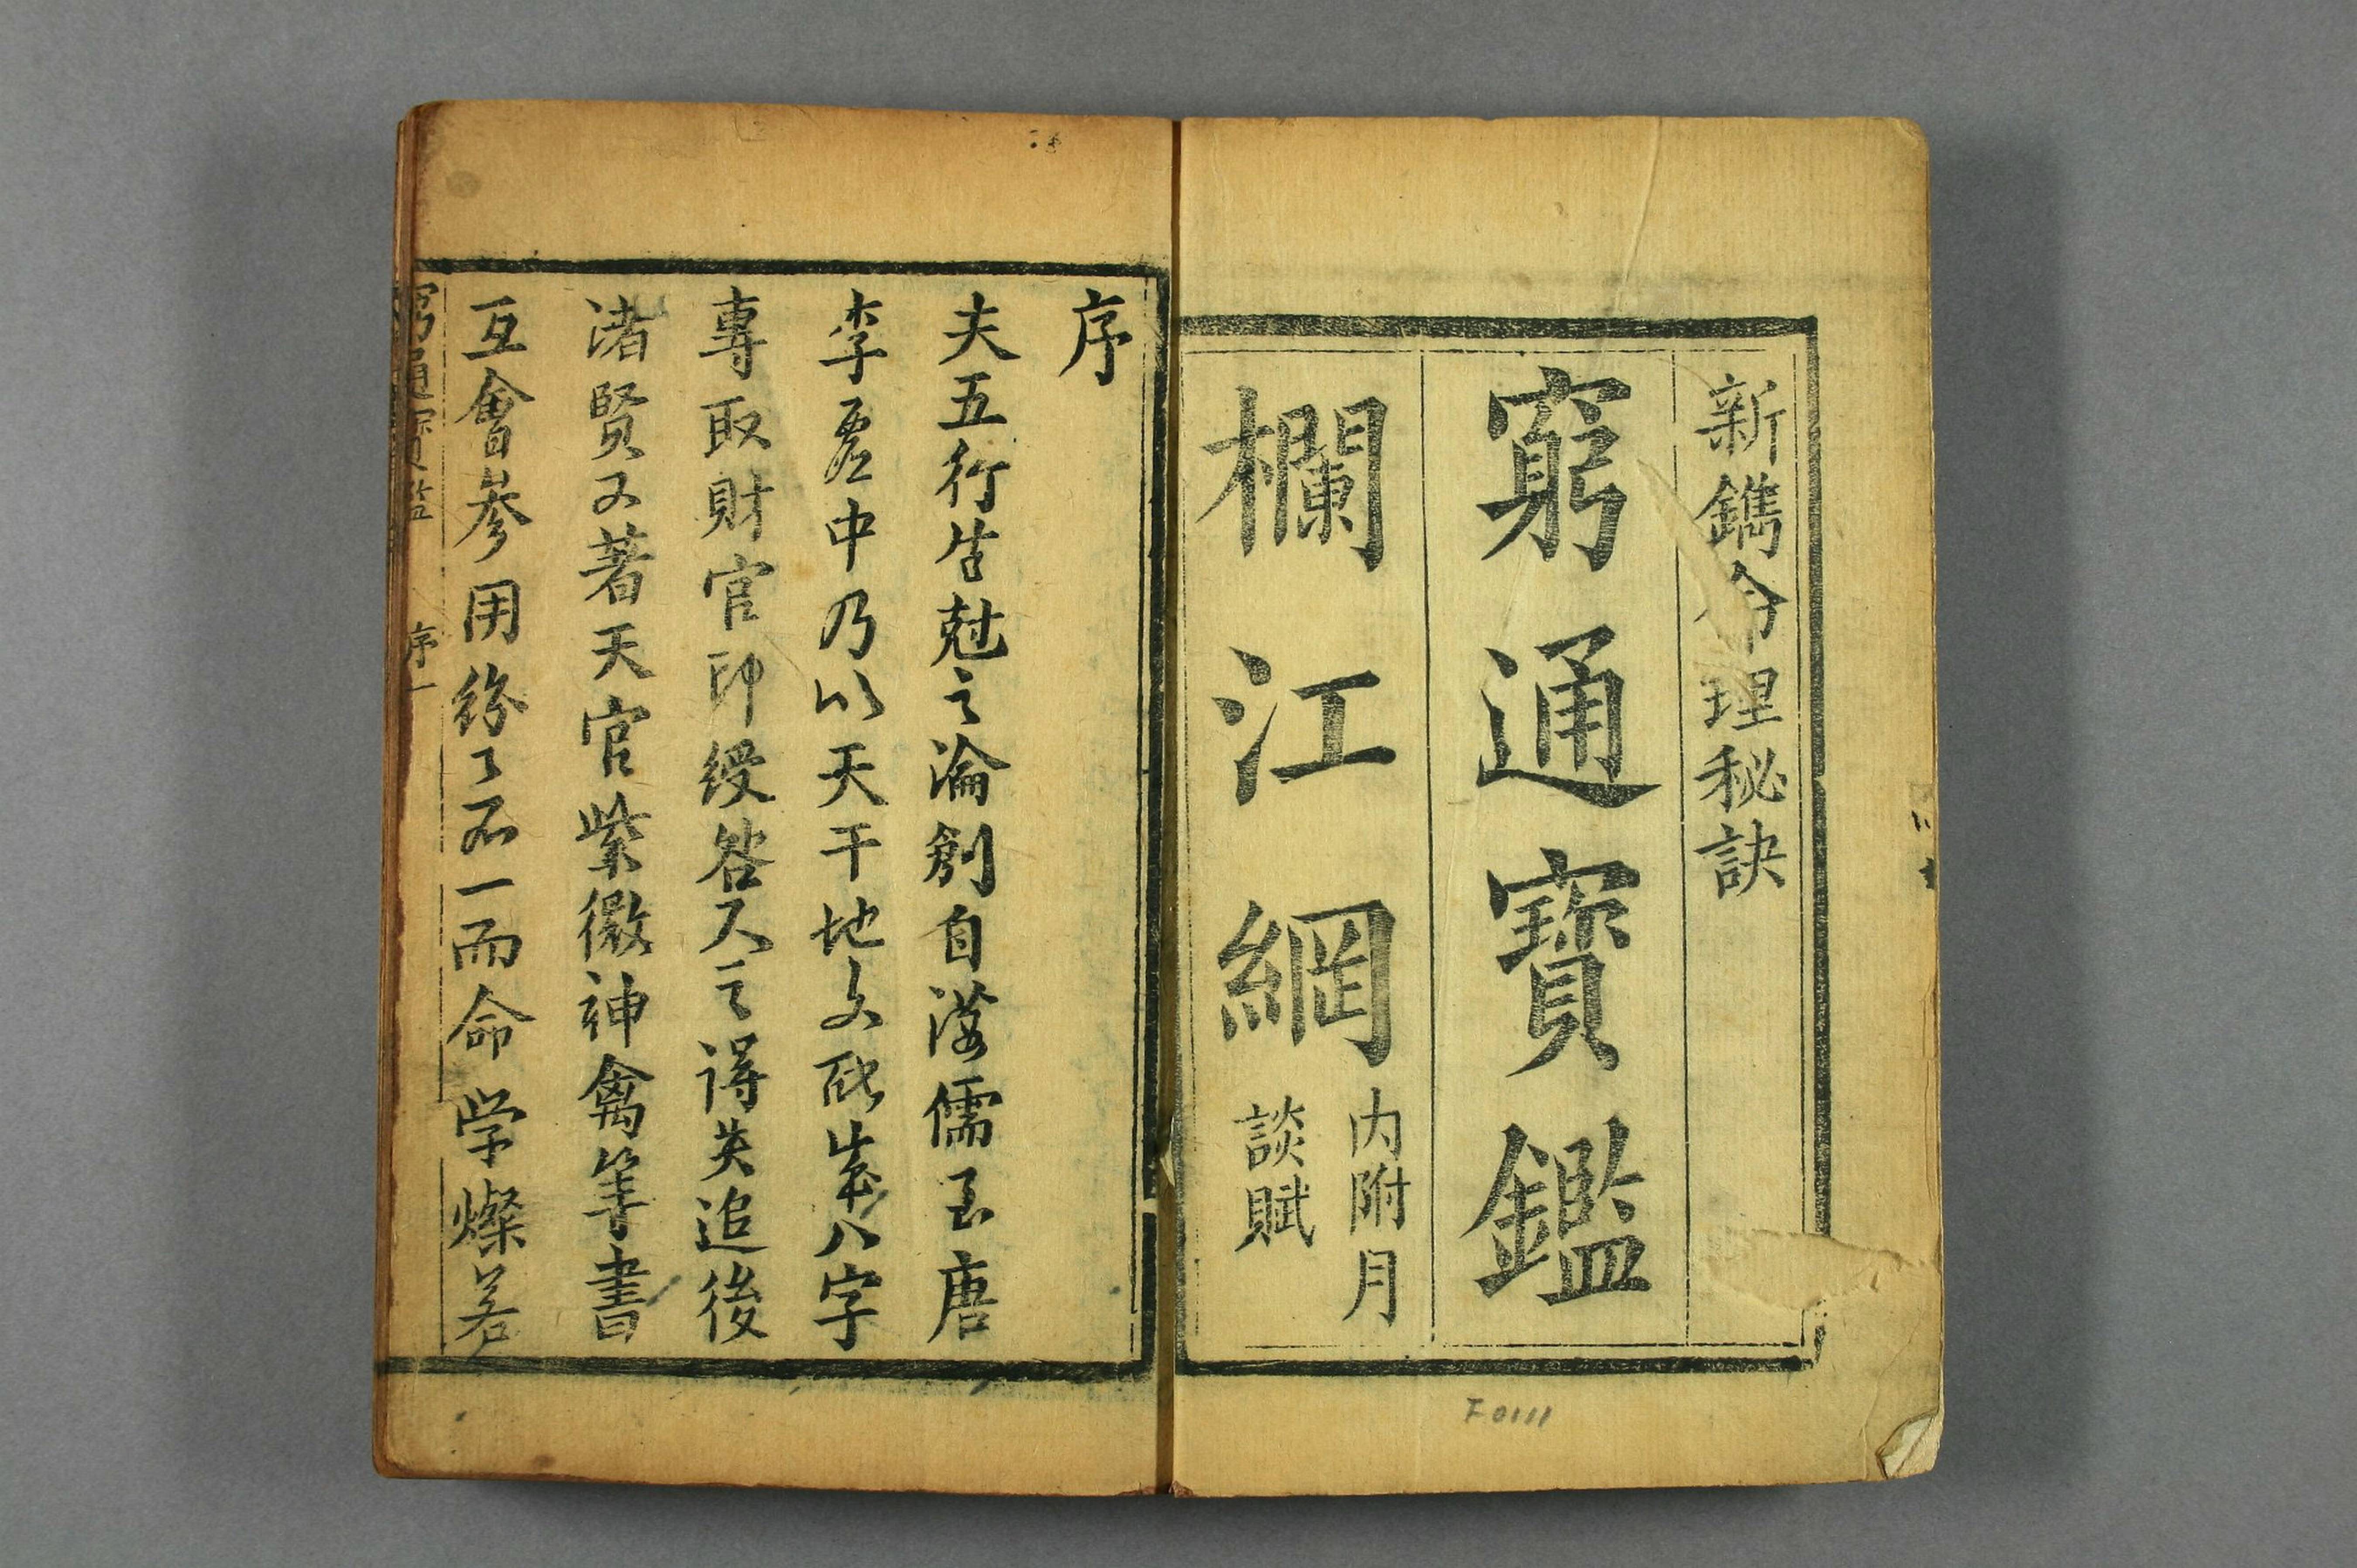 新鐫命理秘訣
窮通寶鑑
欄江網
内附月
談賦
序
夫五行生尅之論創自漢儒至唐
李虛中乃以天干地支配八字
專取財官印綬咎人之得失追後
諸賢又著天官紫微神禽等書
互會參用紛々不一而命学燦若
窮通寶鑑 序 一
F0111